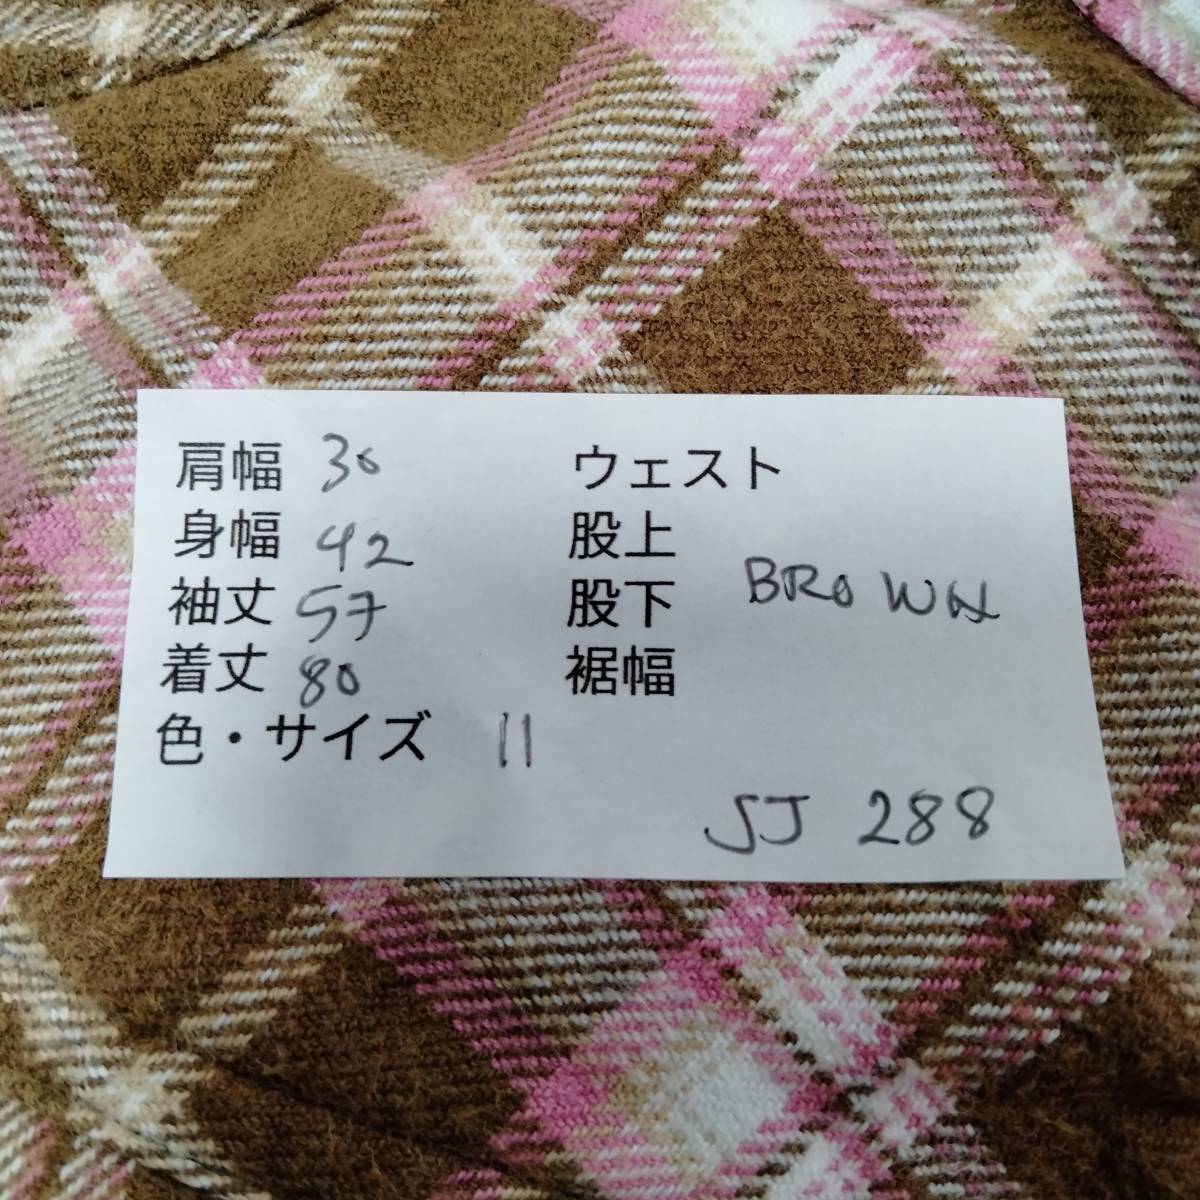 肩幅 30 ウェスト
身幅 42 股上
袖丈 57 股下 BROWN
着丈 80 裾幅
色・サイズ 11
SJ 288